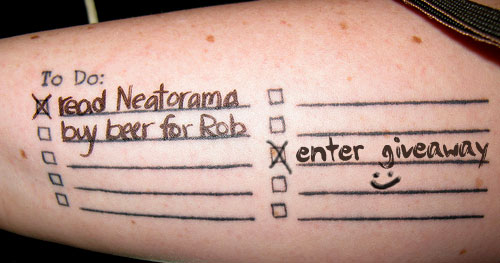 To Do:
read Neatorama
buy beer for Rob
enter giveaway